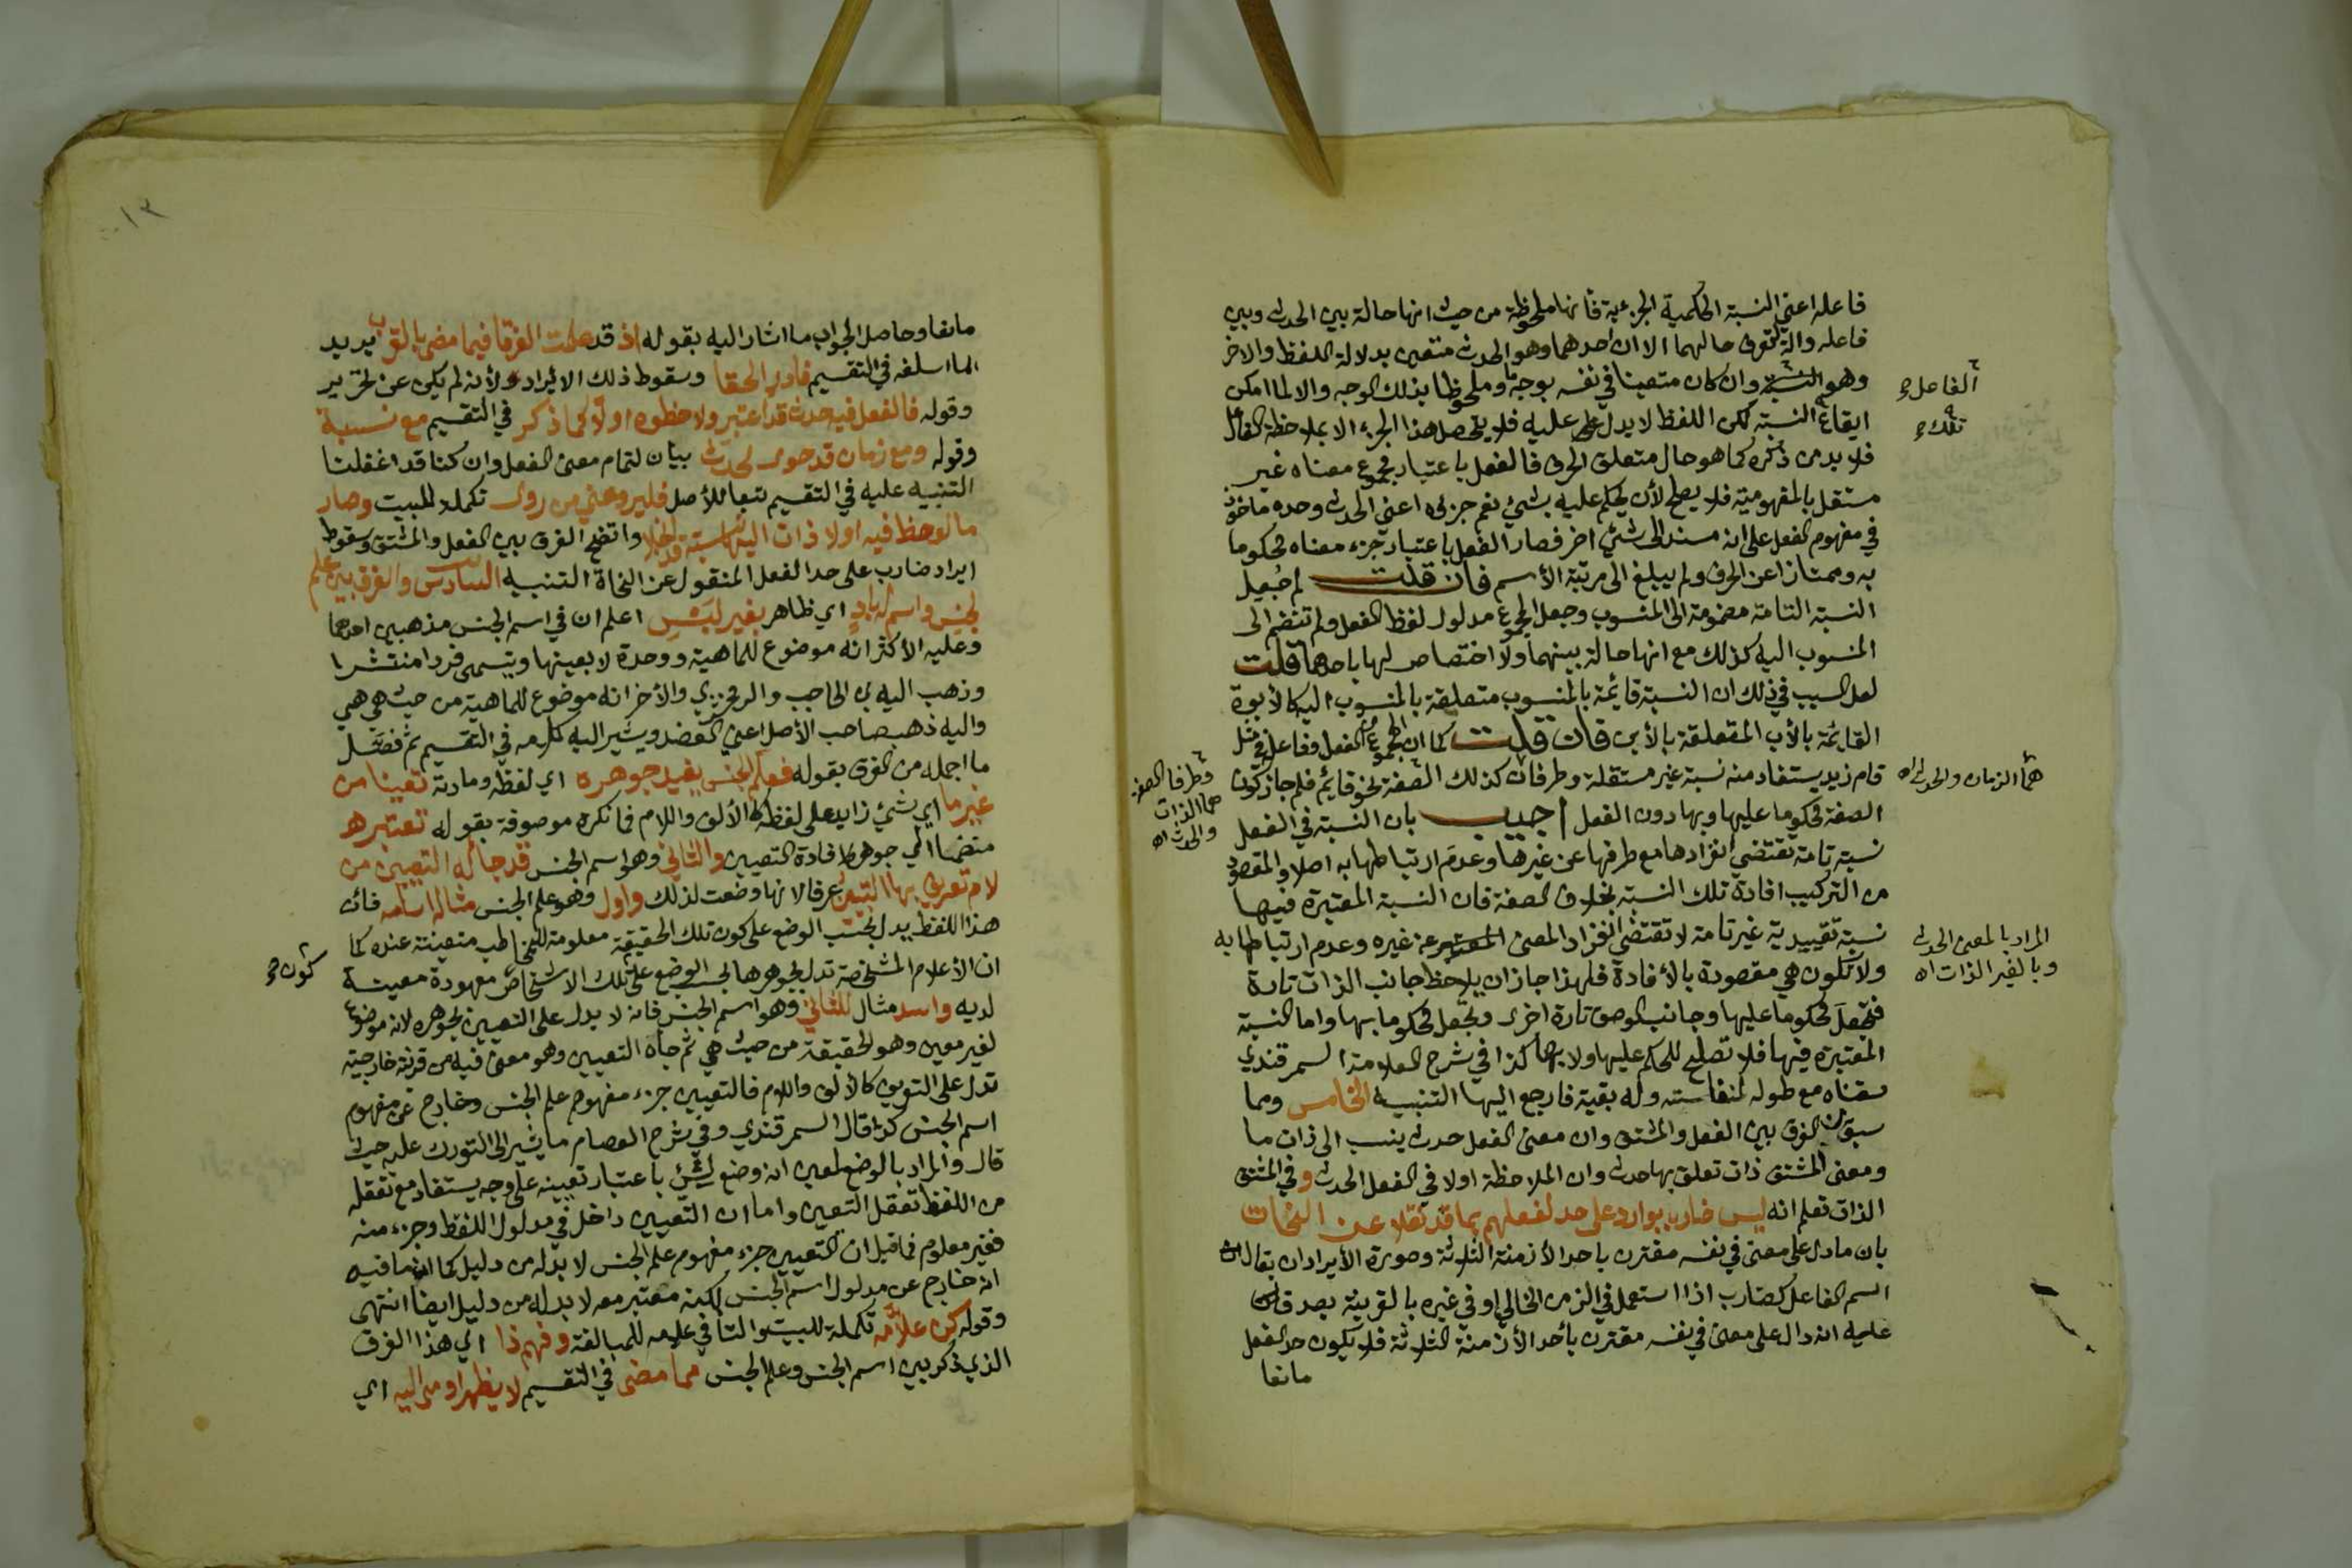 فاعله اعني النسبة الحكمية الجزئية فانها ملحوظة من حيث انها حالة بين الحدث وبين
فاعله والة لتعرف حالهما الا ان احدهما وهو الحدث متعين بدلالة اللفظ والاخر
وهو وان كان متعينا في نفسه بوجه وملحوظا بذلك الوجه والا لما امكن
الفاعل
ايقاع النسبة لكن اللفظ لا يدل عليه فلا يتحصل هذا الجزء الا بملاحظة الفاعل
تلك
فلا بد من ذكره كما هو حال متعلق الحرف فالفعل باعتبار مجموع معناه غير
مستقل بالمفهومية فلا يصلح لأن يحكم عليه بشيء نعم جزئه اعني الحدث وحده ماخوذ
في مفهوم الفعل على انه مسند الى شيئ اخر فصار الفعل باعتبار جزء معناه محكوما
به وممتازا عن الحرف ولم يبلغ الى مرتبة الأسم فان قلت لم جُعِل
النسبة التامة مضمومة الى المنسوب وجعل المجموع مدلول لفظ الفعل ولم تنضم الى
المنسوب اليه كذلك مع انها حالة بينهما ولا اختصاص لها باحدهما قلت
لعل السبب في ذلك ان النسبة قائمة بالمنسوب متعلقة بالمنسوب اليه كالأبوة
القائمة بالأب المتعلقة بالأبن فان قلت كما ان المجموع الفعل وفاعل في مثل
قام زيد يستفاد منه نسبة غير مستقلة وطرفان كذلك الصفة نحو قايم فلم جاز كون
هما الزمان والحدث اه
وطرفا الصفة
هما الذات
والحدث اه
الصفة محكوما عليها وبها دون الفعل اجيب بان النسبة في الفعل
نسبة تامة تقتضي انفرادها مع طرفها عن غيرها وعدم ارتباطها به اصلا والمقصود
من التركيب افادة تلك النسبة بخلاف الصفة فان النسبة المعتبرة فيها
نسبة تقييدية غير تامة لا تقتضي انفراد المعنى عن غيره وعدم ارتباطها به
المراد بالمعنى الحدث
وبالغير الذات اه
ولا تكون هي مقصودة بالأفادة فلهذا جاز ان يلاحظ جانب الذات تارة
فتجعل محكوما عليها وجانب الوصف تارة اخرى ويجعل محكوما بها واما النسبة
المعتبرة فيها فلا تصلح للحكم عليها ولا بها كذا في شرح العلامة السمرقندي
سقناه مع طوله لنفاسته وله بقية فارجع اليها التنبيه الخامس ومما
سبق الفرق بين الفعل والمشتق وان معنى الفعل حدث ينسب الى ذات ما
ومعنى المشتق ذات تعلق بها حدث وان الملاحظة اولا في الفعل الحدث وفي المشتق
الذات تعلم انه ليس ضارب بوارد على حد لفعلهم بما قد نقلا عن النحات
بان ما دل على معنى في نفسه مقترن باحد الأزمنة الثلاثة وصورة الأيراد ان يقال ان
اسم الفاعل كضارب اذا استعمل في الزمن الحالي او في غيره بالقرينة يصدق
عليه انه دال على معنى في نفسه مقترن بأحد الأزمنة الثلاثة فلا يكون حد الفعل
مانعا
١٣
مانعا وحاصل الجواب ما اشار اليه بقوله اذ قد علمت الفرقا فيما مضى بالقرب يريد
الما اسلفه في التقسيم فادر الحقا وسقوط ذلك الأيراد ولأنه لم يكن عن تحرير
وقوله فالفعل فيه حدث قد اعتبر ولاحظوه اولا كما ذكر في التقسيم مع نسبة
وقوله ومع زمان قد حوى لحدث بيان لتمام معنى الفعل وان كنا قد اغفلنا
التنبيه عليه في التقسيم تبعا للأصل فليرو عني من روى تكملة للبيت وصار
ما لوحظ فيه اولا ذات اليها نسبة واتضح الفرق بين الفعل والمشتق وسقوط
ايراد ضارب على حد الفعل المنقول عن النحاة التنبيه السادس والفرق بين علم
لجنس واسم له بادٍ اي ظاهر بغير لبس اعلم ان في اسم الجنس مذهبين احدهما
وعليه الأكثر انه موضوع للماهية ووحدة لا بعينها ويسمى فردا منتشرا
وذهب اليه بن الحاجب والزمخشري والأخر انه موضوع للماهية من حيث هي هي
واليه ذهب صاحب الأصل اعني العضد ويشير اليه كلامه في التقسيم ثم فصّل
ما اجمله من الفرق بقوله فعلم الجنس يفيد جوهره اي لفظه ومادته تعينا من
غير ما اي شيئ زايد على لفظه كالألف واللام فما نكرة موصوفة بقوله تعتبره
منضما الى جوهره لافادة التعيين والثاني وهو اسم الجنس قد جا له التعيين من
لام تعريف بها التعيين عرفا لانها وضعت لذلك واول وهو علم الجنس مثاله اسامه فان
هذا اللفظ يدل بحسب الوضع على كون تلك الحقيقة معلومة للمخاطب متعينة عنده كما
ان الأعلام الشخصية تدل بجوهرها بحسب الوضع على تلك الاشخاص معهودة معينة
كون
لديه واسد مثال للثاني وهو اسم الجنس فانه لا يدل على التعيين بجوهره لانه موضوع
لغير معين وهو الحقيقة من حيث هي ثم جاه التعيين وهو معنى فيه من قرينة خارجية
تدل على التعريف كالألف واللام فالتعيين جزء مفهوم علم الجنس وخارج عن مفهوم
اسم الجنس كذا قال السمرقندي وفي شرح العصام ما يشير الى التورك عليه حيث
قال والمراد بالوضع لمعين انه وضع لشيئ باعتبار تعيينه على وجه يستفاد مع تعقله
من اللفظ تعقل التعين واما ان التعيين داخل في مدلول اللفظ وجزء منه
فغير معلوم فما قيل ان التعيين جزء مفهوم علم الجنس لا بد له من دليل كما ان ما فيه
انه خارج عن مدلول اسم الجنس لكنه معتبر معه لا بد له من دليل ايضا انتهى
وقوله كن علامه تكملة للبيت والتا في علامه للمبالغة وفهم ذا اي هذا الفرق
الذي ذكر بين اسم الجنس وعلم الجنس مما مضى في التقسيم لا يظهر اومى اليه اي